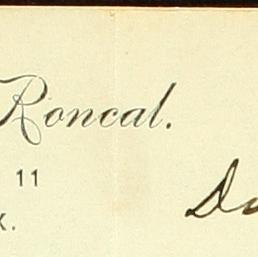 Roncal.
11
x.